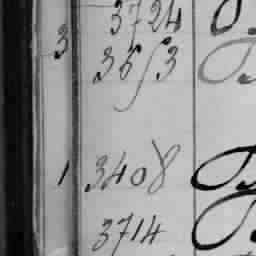 3724
3 3653
1 3408
3714